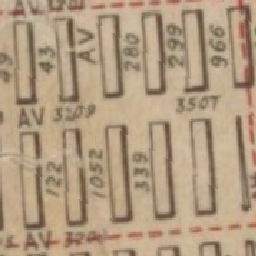 AV
43
AV
280
299
966
AV 3209
3507
122
1052
339
AV